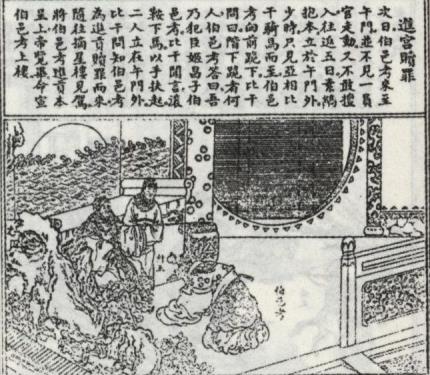 進宮贖罪
次日伯邑考來至
午門並不見一員
官走動又不敢擅
入往返五日素縞
抱本立於午門外
少時只見亞相比
干騎馬而至伯邑
考向前跪下比干
問曰階下跪者何
人伯邑考答曰吾
乃犯臣姬昌子伯
邑考比干聞言滾
鞍下馬以手扶起
二人立在午門外
比干問知伯邑考
為進貢贖罪而來
隨往摘星樓見駕
將伯邑考進貢本
呈上帝覽畢命宣
伯邑考上樓
紂王
伯邑考